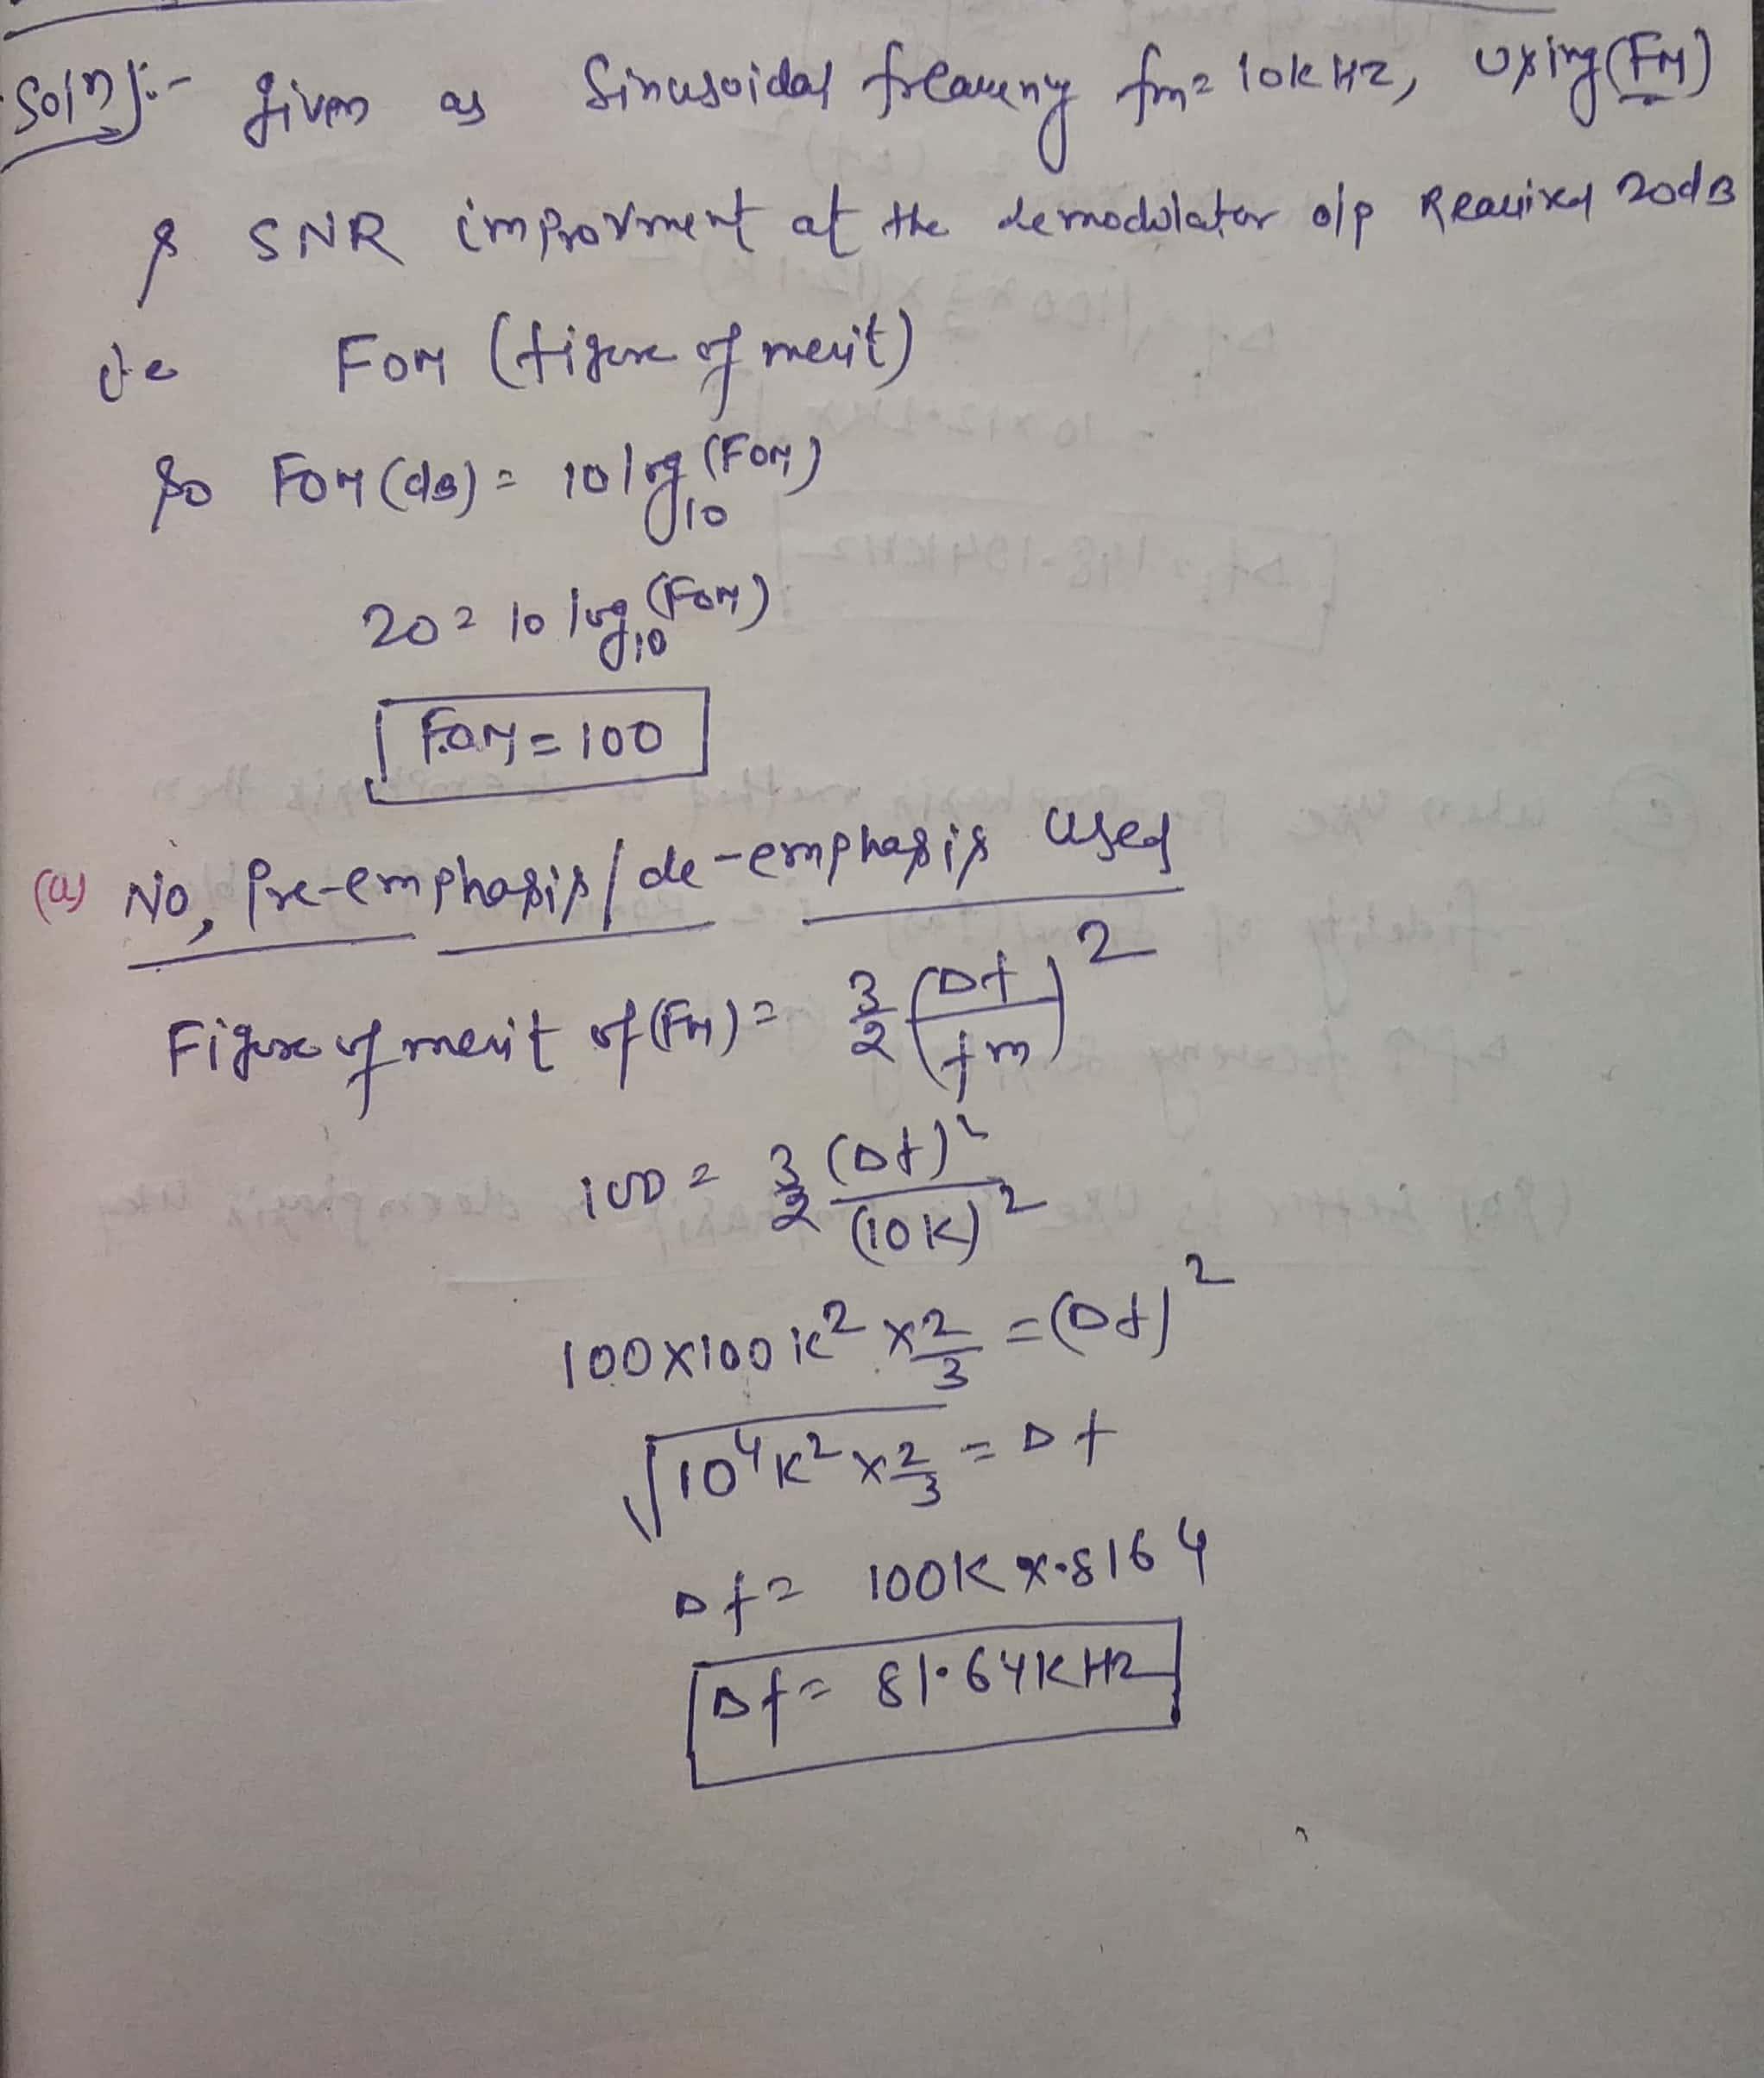 Soln):- given as Sinusoidal freaueny fm = 10KHz, using (FM)
& SNR improvment at the demodulator o/p Reauired 20dB
i.e FOM (figure of merit)
so FOM (dB) = 10 log10 (FOM)
20 = 10 log10 (FOM)
FOM = 100
(a) No, Pre-emphasis/de-emphasis used
Figure of merit of (FM) = 3/2 (Δf/fm)^2
100 = 3/2 (Δf)^2/(10K)^2
100x100 K^2 x 2/3 = (Δf)^2
√10^4 K^2 x 2/3 = Δf
Δf = 100K x .8164
Δf = 81.64KHz